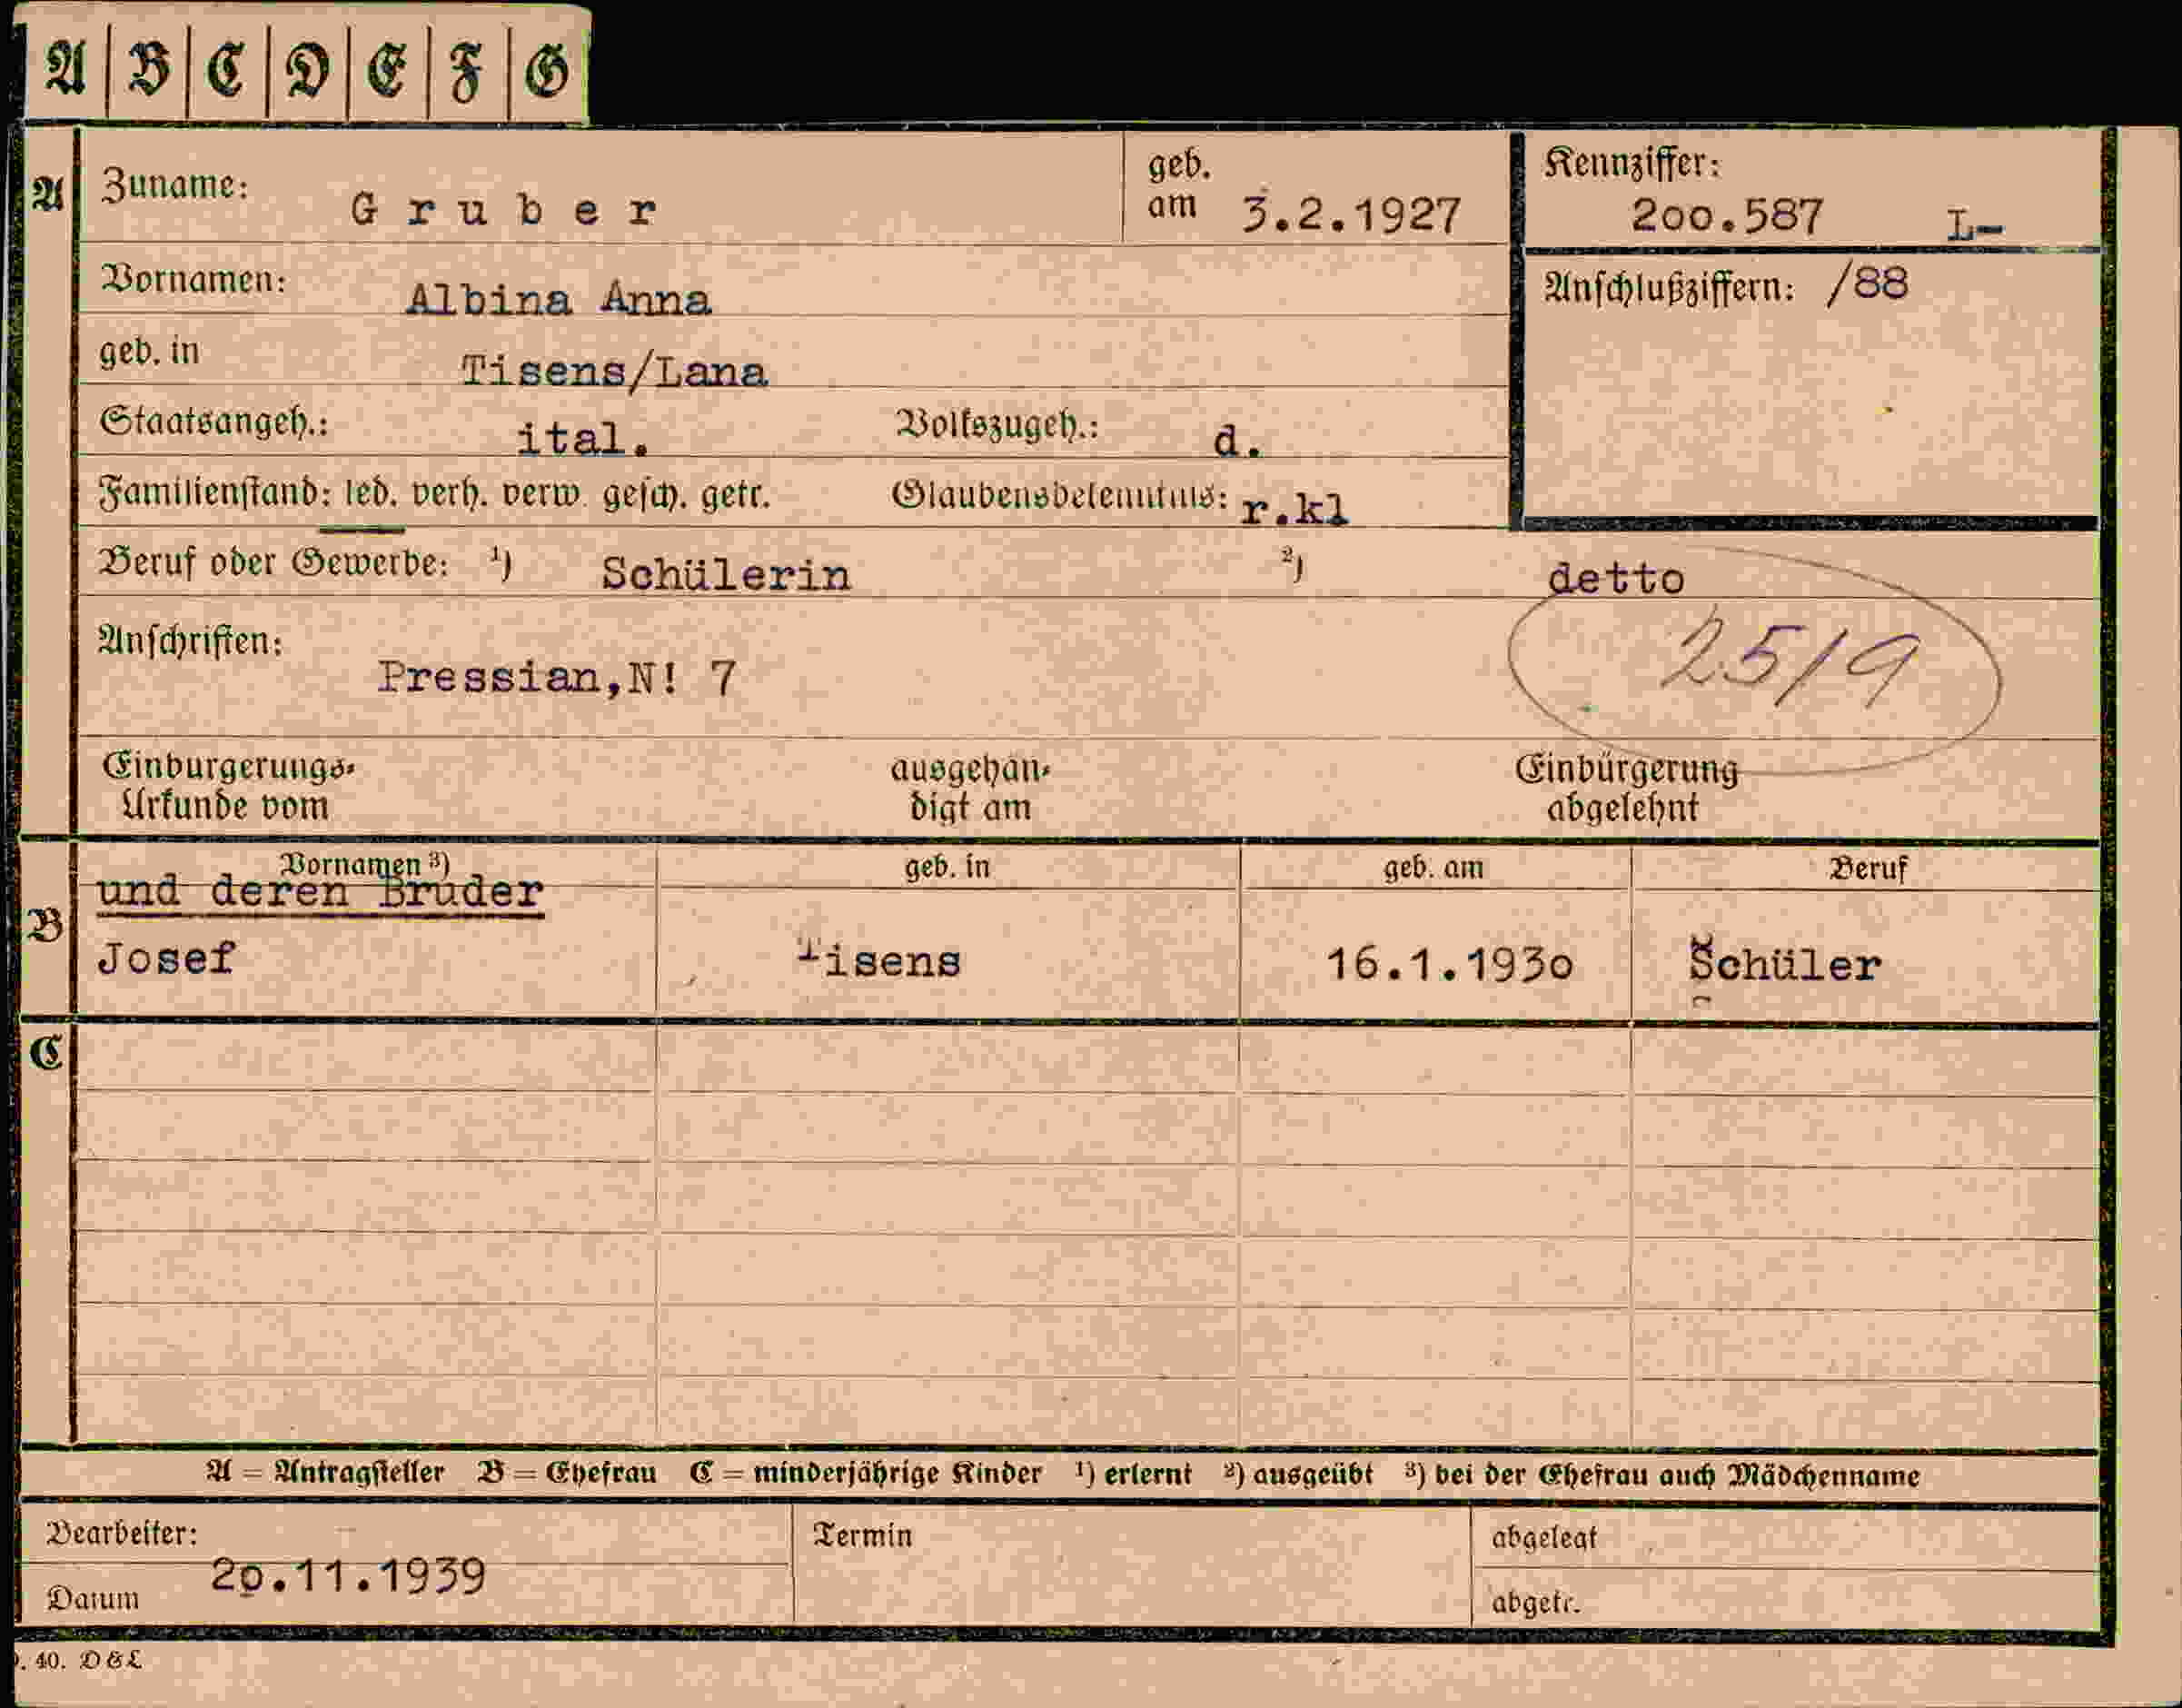 A | B | C | D | E | F | G
A Zuname: Gruber geb. am 3.2.1927 Kennziffer: 200.587 L-
Vornamen: Albina Anna Anschlußziffern: /88
geb. in Tisens/Lana
Staatsangeh.: ital. Volkszugeh.: d.
Familienstand: led. verh. verw. gesch. getr. Glaubensbekenntnis: r.kl
Beruf oder Gewerbe: ¹) Schülerin ²) detto
25/9
Anschriften: Pressian,N! 7
Einbürgerungs- ausgehän- Einbürgerung
Urkunde vom digt am abgelehnt
Vornamen ³) geb. in geb. am Beruf
und deren Bruder
B Josef Tisens 16.1.1930 Schüler
C
A = Antragsteller B = Ehefrau C = minderjährige Kinder ¹) erlernt ²) ausgeübt ³) bei der Ehefrau auch Mädchenname
Bearbeiter: Termin abgelegt
Datum 20.11.1939 abgetr.
40. D & L